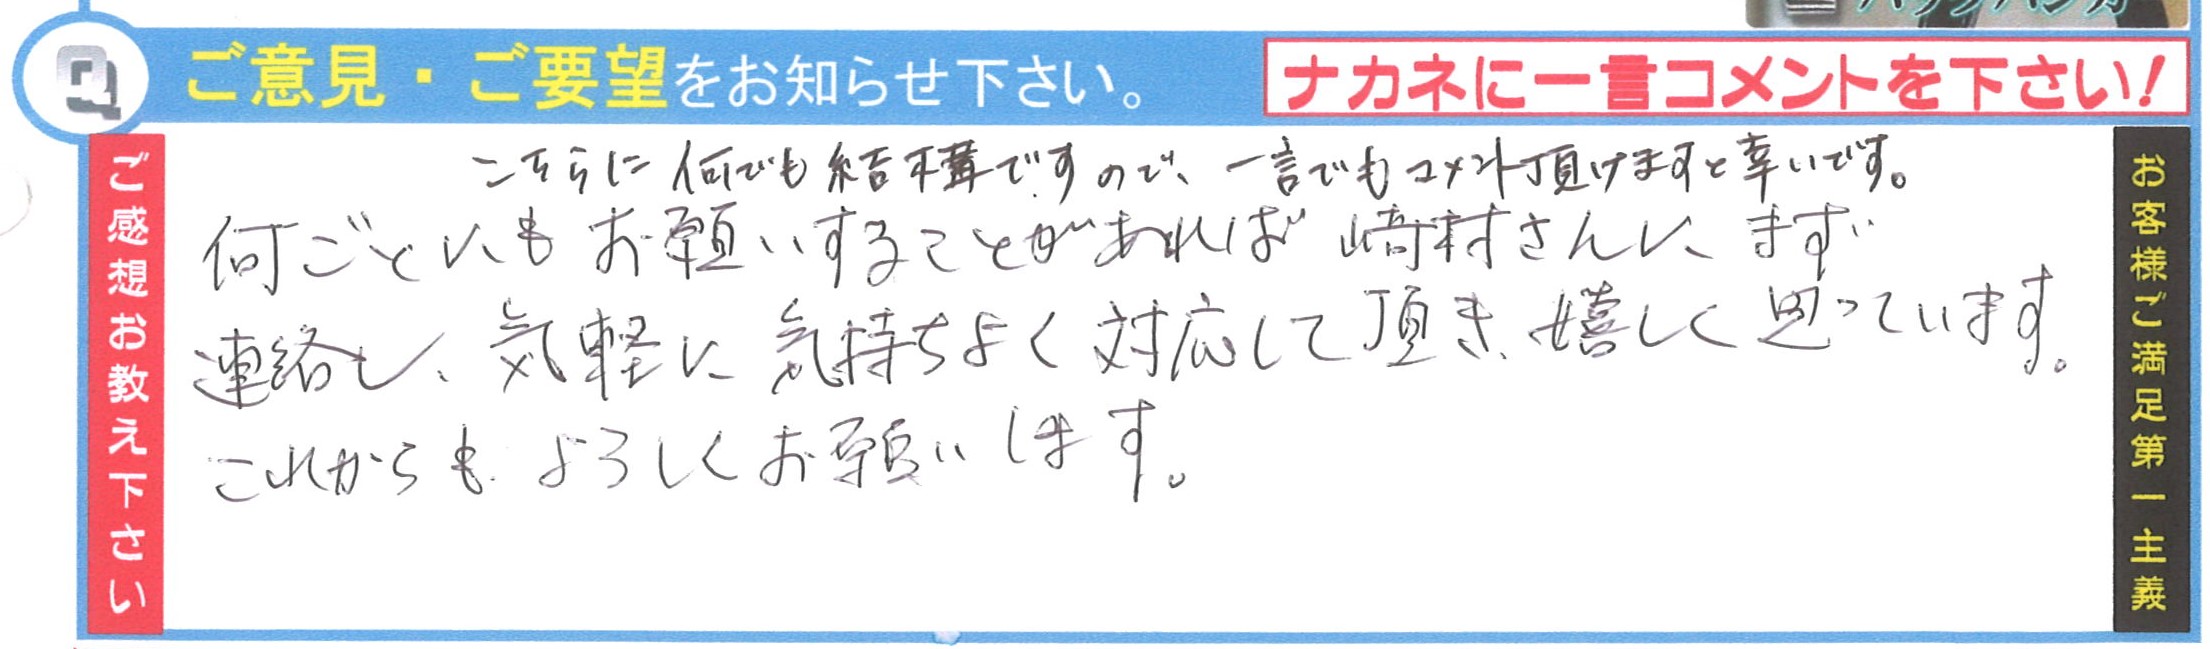 Q ご意見・ご要望をお知らせ下さい。
ナカネに一言コメントを下さい!
ご感想お教え下さい
こちらに何でも結構ですので、一言でもコメント頂けますと幸いです。
何ごとにもお願いすることがあれば崎村さんに、まず
連絡し、気軽に気持ちよく対応して頂き、嬉しく思っています。
これからも、よろしくお願いします。
お客様ご満足第一主義